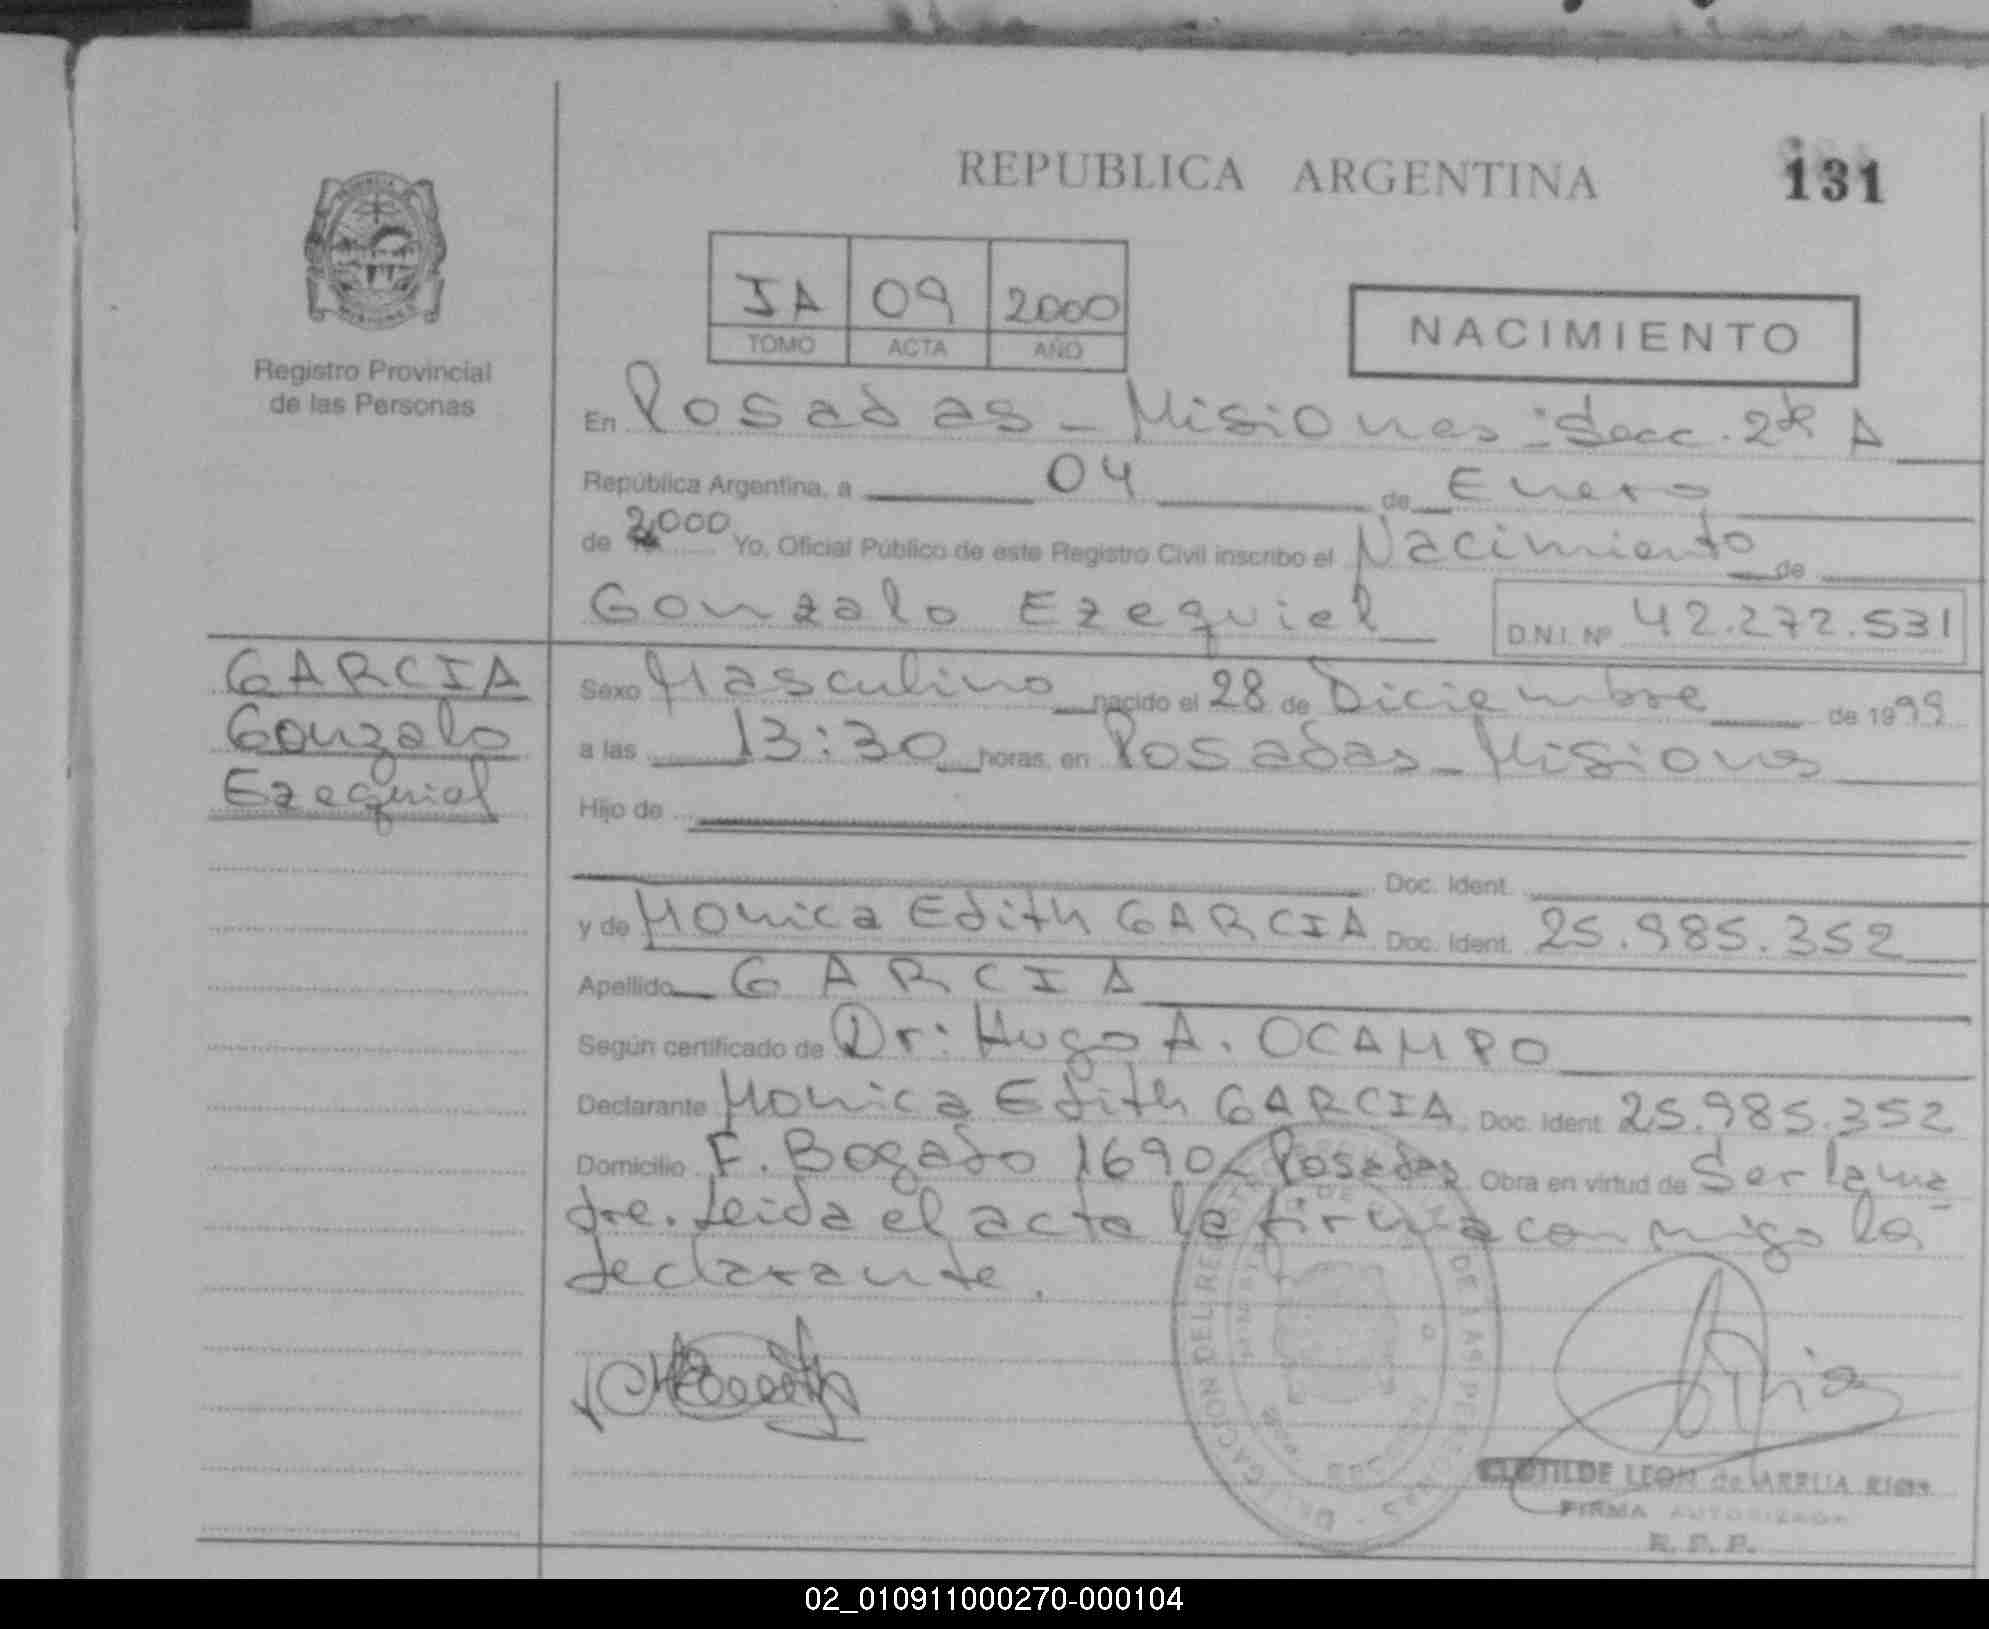 REPUBLICA ARGENTINA
131
Registro Provincial
de las Personas
IA 09 2000
TOMO ACTA AÑO
NACIMIENTO
En Posadas - Misiones - Secc. 2da A
República Argentina, a 04 de Enero
de 2000 Yo, Oficial Público de este Registro Civil inscribo el Nacimiento de
Gonzalo Ezequiel D.N.I. Nº 42.272.531
GARCIA
Gonzalo
Ezequiel
Sexo Masculino nacido el 28 de Diciembre de 1999
a las 13:30 horas, en Posadas - Misiones
Hijo de
Doc. Ident.
y de Monica Edith GARCIA Doc. Ident. 25.985.352
Apellido GARCIA
Según certificado de Dr: Hugo A. OCAMPO
Declarante Monica Edith GARCIA Doc. Ident. 25.985.352
Domicilio F. Bogado 1690 - Posadas Obra en virtud de Ser la ma
dre. Leida el acta la firma conmigo la
declarante.
CLOTILDE LEON de ARRUA RIOS
FIRMA AUTORIZADA
R. P. P.
02_010911000270-000104